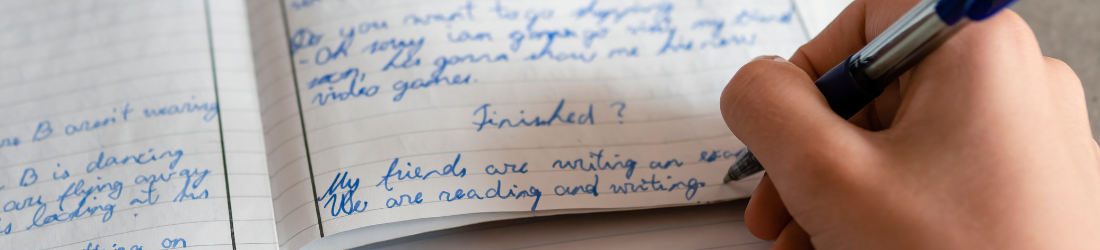 B aren't wearing
B is dancing
are flying away
is looking at his
on
Do you want to go shopping
- Oh sorry i am gonna go visit my friend
soon, he's gonna show me his new
video games.
Finished ?
My friends are writing an
We are reading and writing.